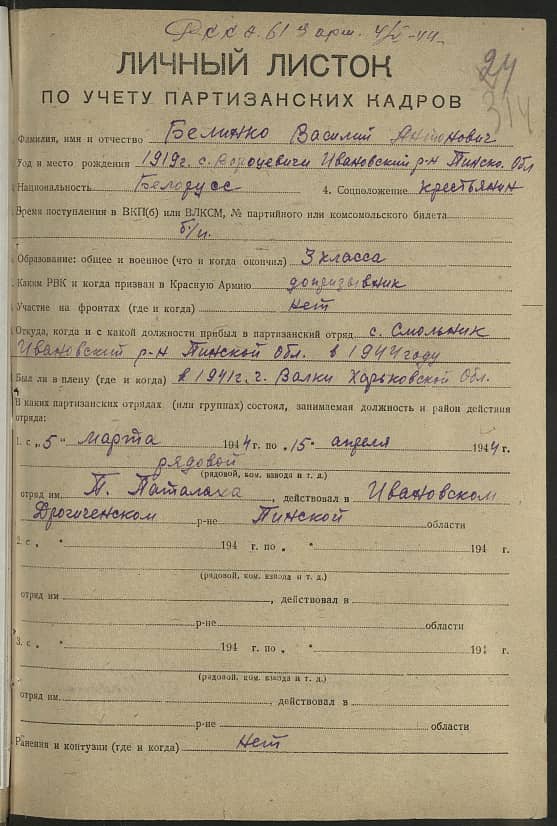 РККА. 61 9 арм. 4/VI-44
24
314
ЛИЧНЫЙ ЛИСТОК
ПО УЧЕТУ ПАРТИЗАНСКИХ КАДРОВ
Фамилия, имя и отчество Белинко Василий Антонович
Год и место рождения 1919г с. Вороцевичи Ивановский р-н Пинско. Обл
Национальность Белорусс 4. Соцположение крестьянин
Время поступления в ВКП(б) или ВЛКСМ, № партийного или комсомольского билета
б/п.
Образование: общее и военное (что и когда окончил) 3 класса
Каким РВК и когда призван в Красную Армию допризывник
Участие на фронтах (где и когда) нет
Откуда, когда и с какой должности прибыл в партизанский отряд с. Смольник
Ивановский р-н Пинской Обл. в 1944 году
Был ли в плену (где и когда) в 1941 г. г. Валки Харьковской Обл.
В каких партизанских отрядах (или группах) состоял, занимаемая должность и район действия
отряда:
1. с „5" марта 1944 г. по „15" апреля 1944 г.
рядовой
(рядовой, ком. взвода и т. д.)
отряд им. Т. Паталаха, действовал в Ивановском
Дрогиченском р-не Пинской области
2. с „ " 194 г. по „ " 194 г.
(рядовой, ком. взвода и т. д.)
отряд им , действовал в
р-не области
3. с „ " 194 г. по „ " 194 г.
(рядовой, ком. взвода и т. д.)
отряд им. , действовал в
р-не области
Ранения и контузии (где и когда) нет